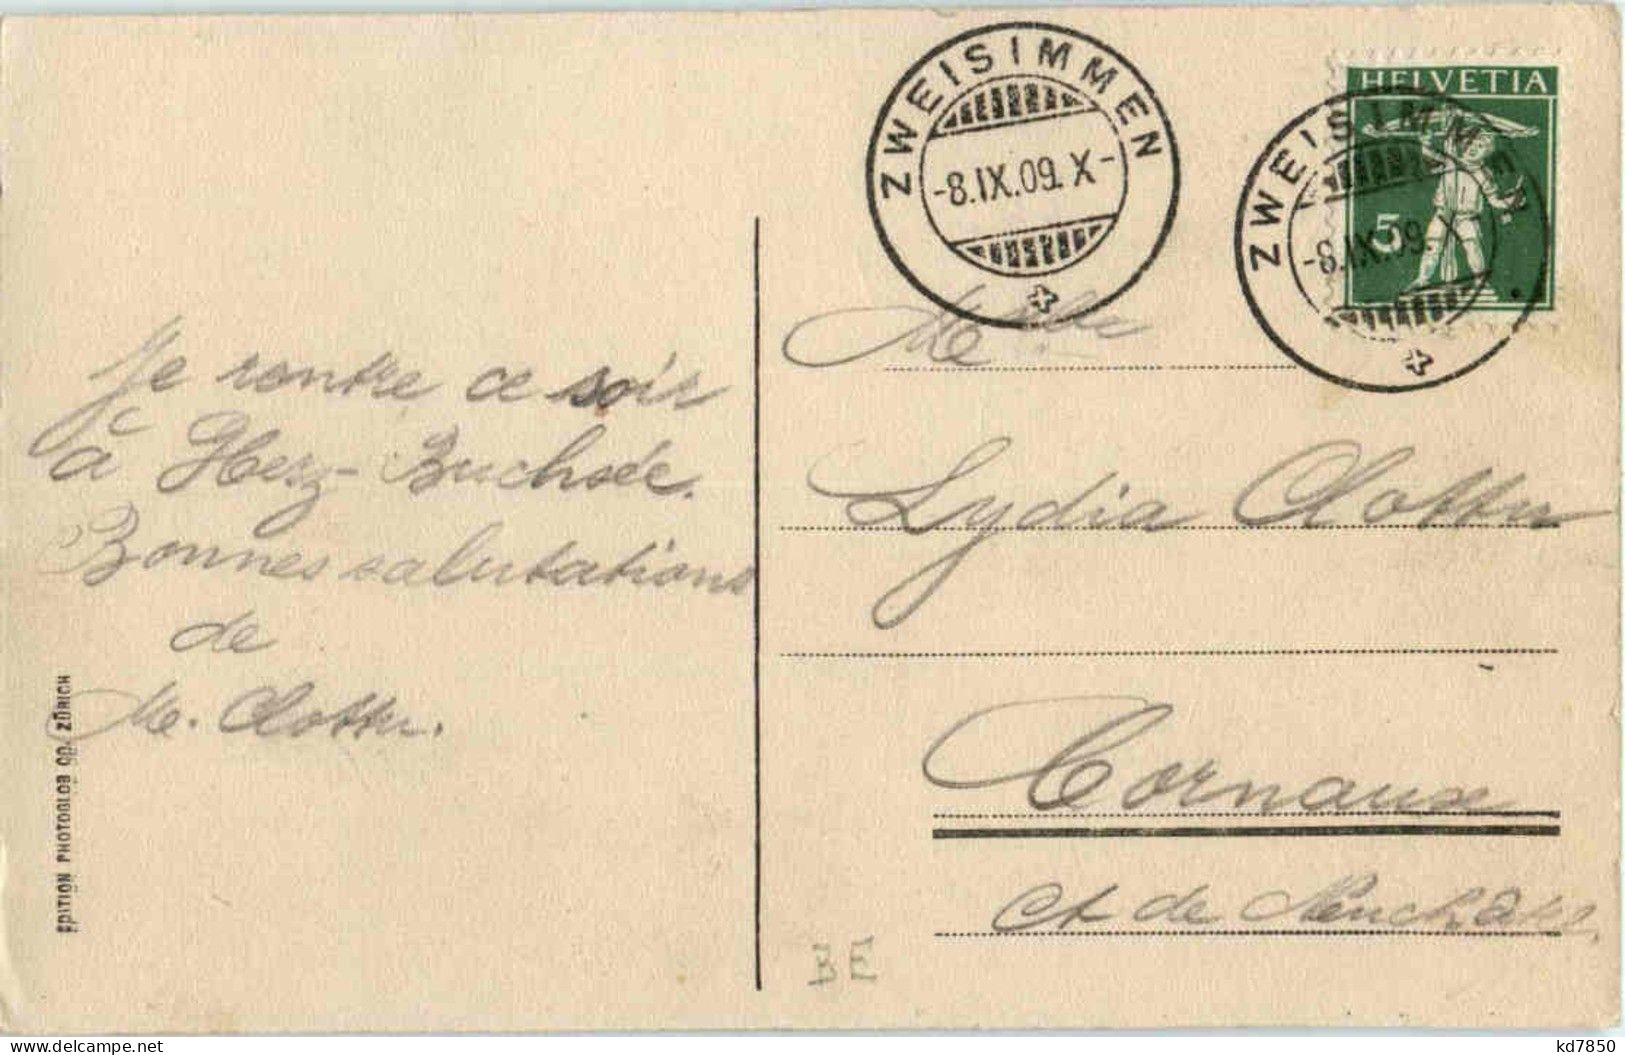 ZWEISIMMEN
-8.IX.09. X-
HELVETIA
5
ZWEISIMMEN
-8.IX.09. X
Je rentre ce soir
à Herz-Buchsée.
Bonnes salutations
de
M. Clottu.
Melle
Lydia Clottu
Cornaux
Ct de Neuchâtel.
EDITION PHOTOGLOB CO. ZÜRICH
delcampe.net
kd7850